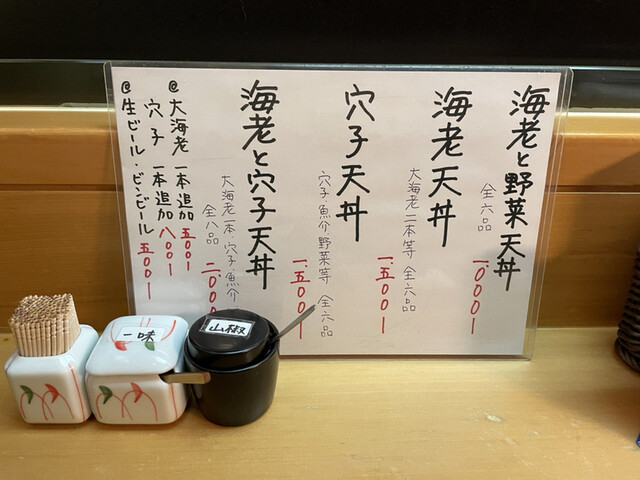 海老と野菜天丼
全六品
一、〇〇〇ー
海老天丼
大海老二本等 全六品
一、五〇〇ー
穴子天丼
穴子・魚介・野菜等 全六品
一、五〇〇ー
海老と穴子天丼
大海老一本 穴子・魚介
全八品
二、〇〇〇
@大海老 一本追加 五〇〇ー
穴子 一本追加 八〇〇ー
@生ビール・ビンビール 五〇〇ー
一味
山椒